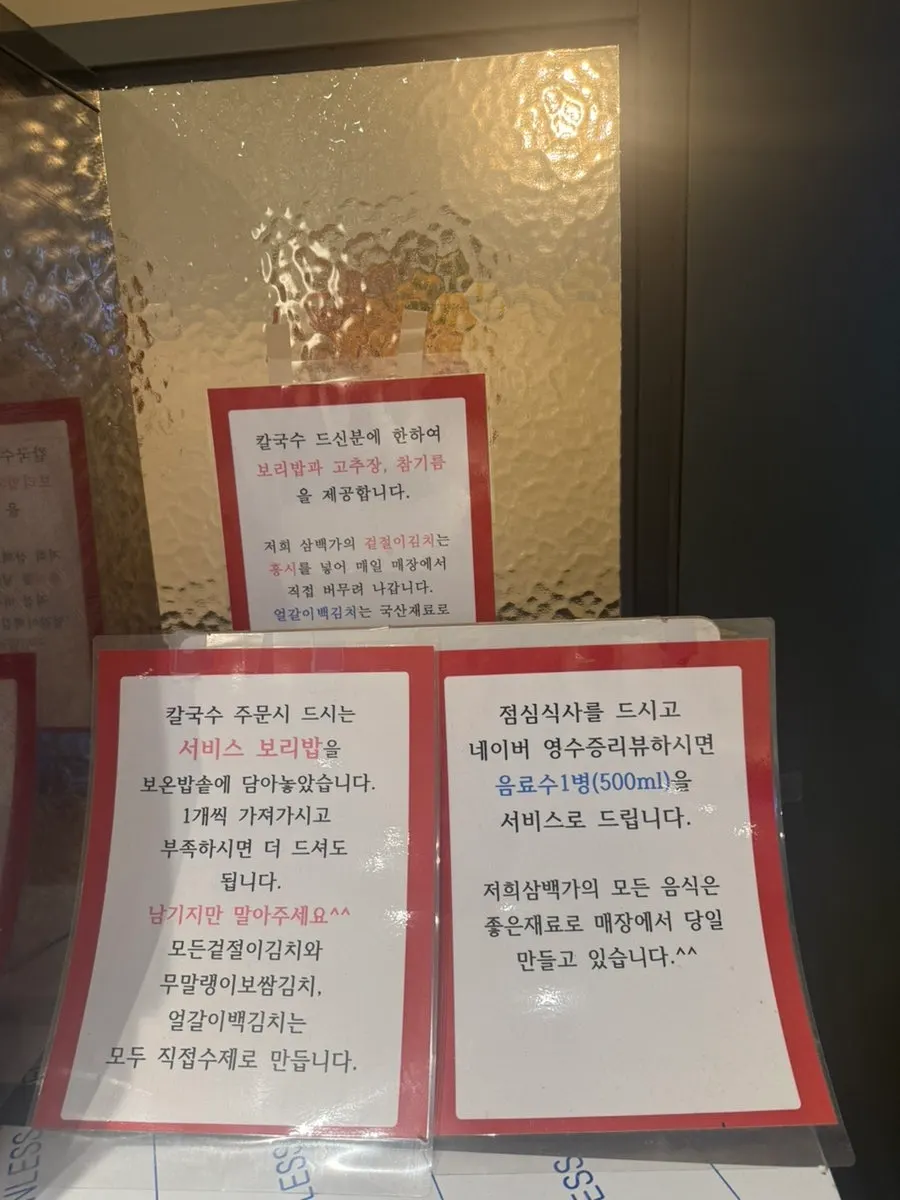 칼국수 드신분에 한하여
보리밥과 고추장, 참기름
을 제공합니다.
저희 삼백가의 겉절이김치는
홍시를 넣어 매일 매장에서
직접 버무려 나갑니다.
얼갈이백김치는 국산재료로
칼국수 주문시 드시는
서비스 보리밥을
보온밥솥에 담아놓았습니다.
1개씩 가져가시고
부족하시면 더 드셔도
됩니다.
남기지만 말아주세요^^
모든겉절이김치와
무말랭이보쌈김치,
얼갈이백김치는
모두 직접수제로 만듭니다.
점심식사를 드시고
네이버 영수증리뷰하시면
음료수1병(500ml)을
서비스로 드립니다.
저희삼백가의 모든 음식은
좋은재료로 매장에서 당일
만들고 있습니다.^^